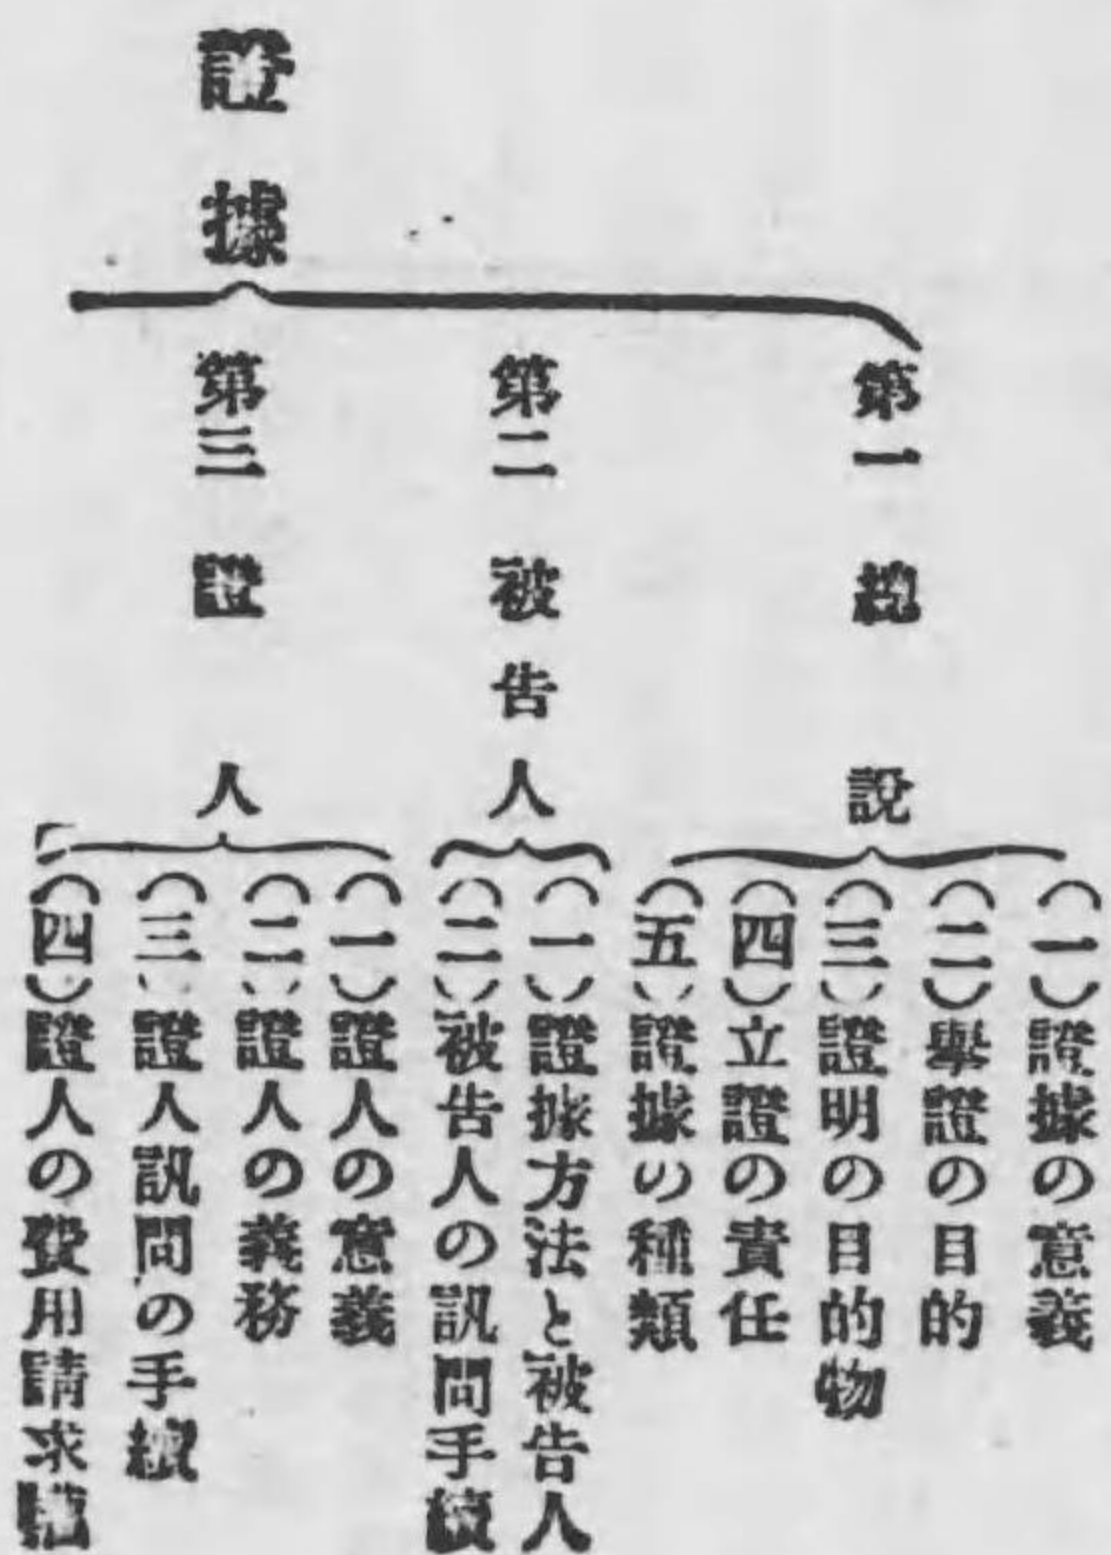 證據
第一 總說
(一)證據の意義
(二)擧證の目的
(三)證明の目的物
(四)立證の責任
(五)證據の種類
第二 被告人
(一)證據方法と被告人
(二)被告人の訊問手續
第三 證人
(一)證人の意義
(二)證人の義務
(三)證人訊問の手續
(四)證人の費用請求權